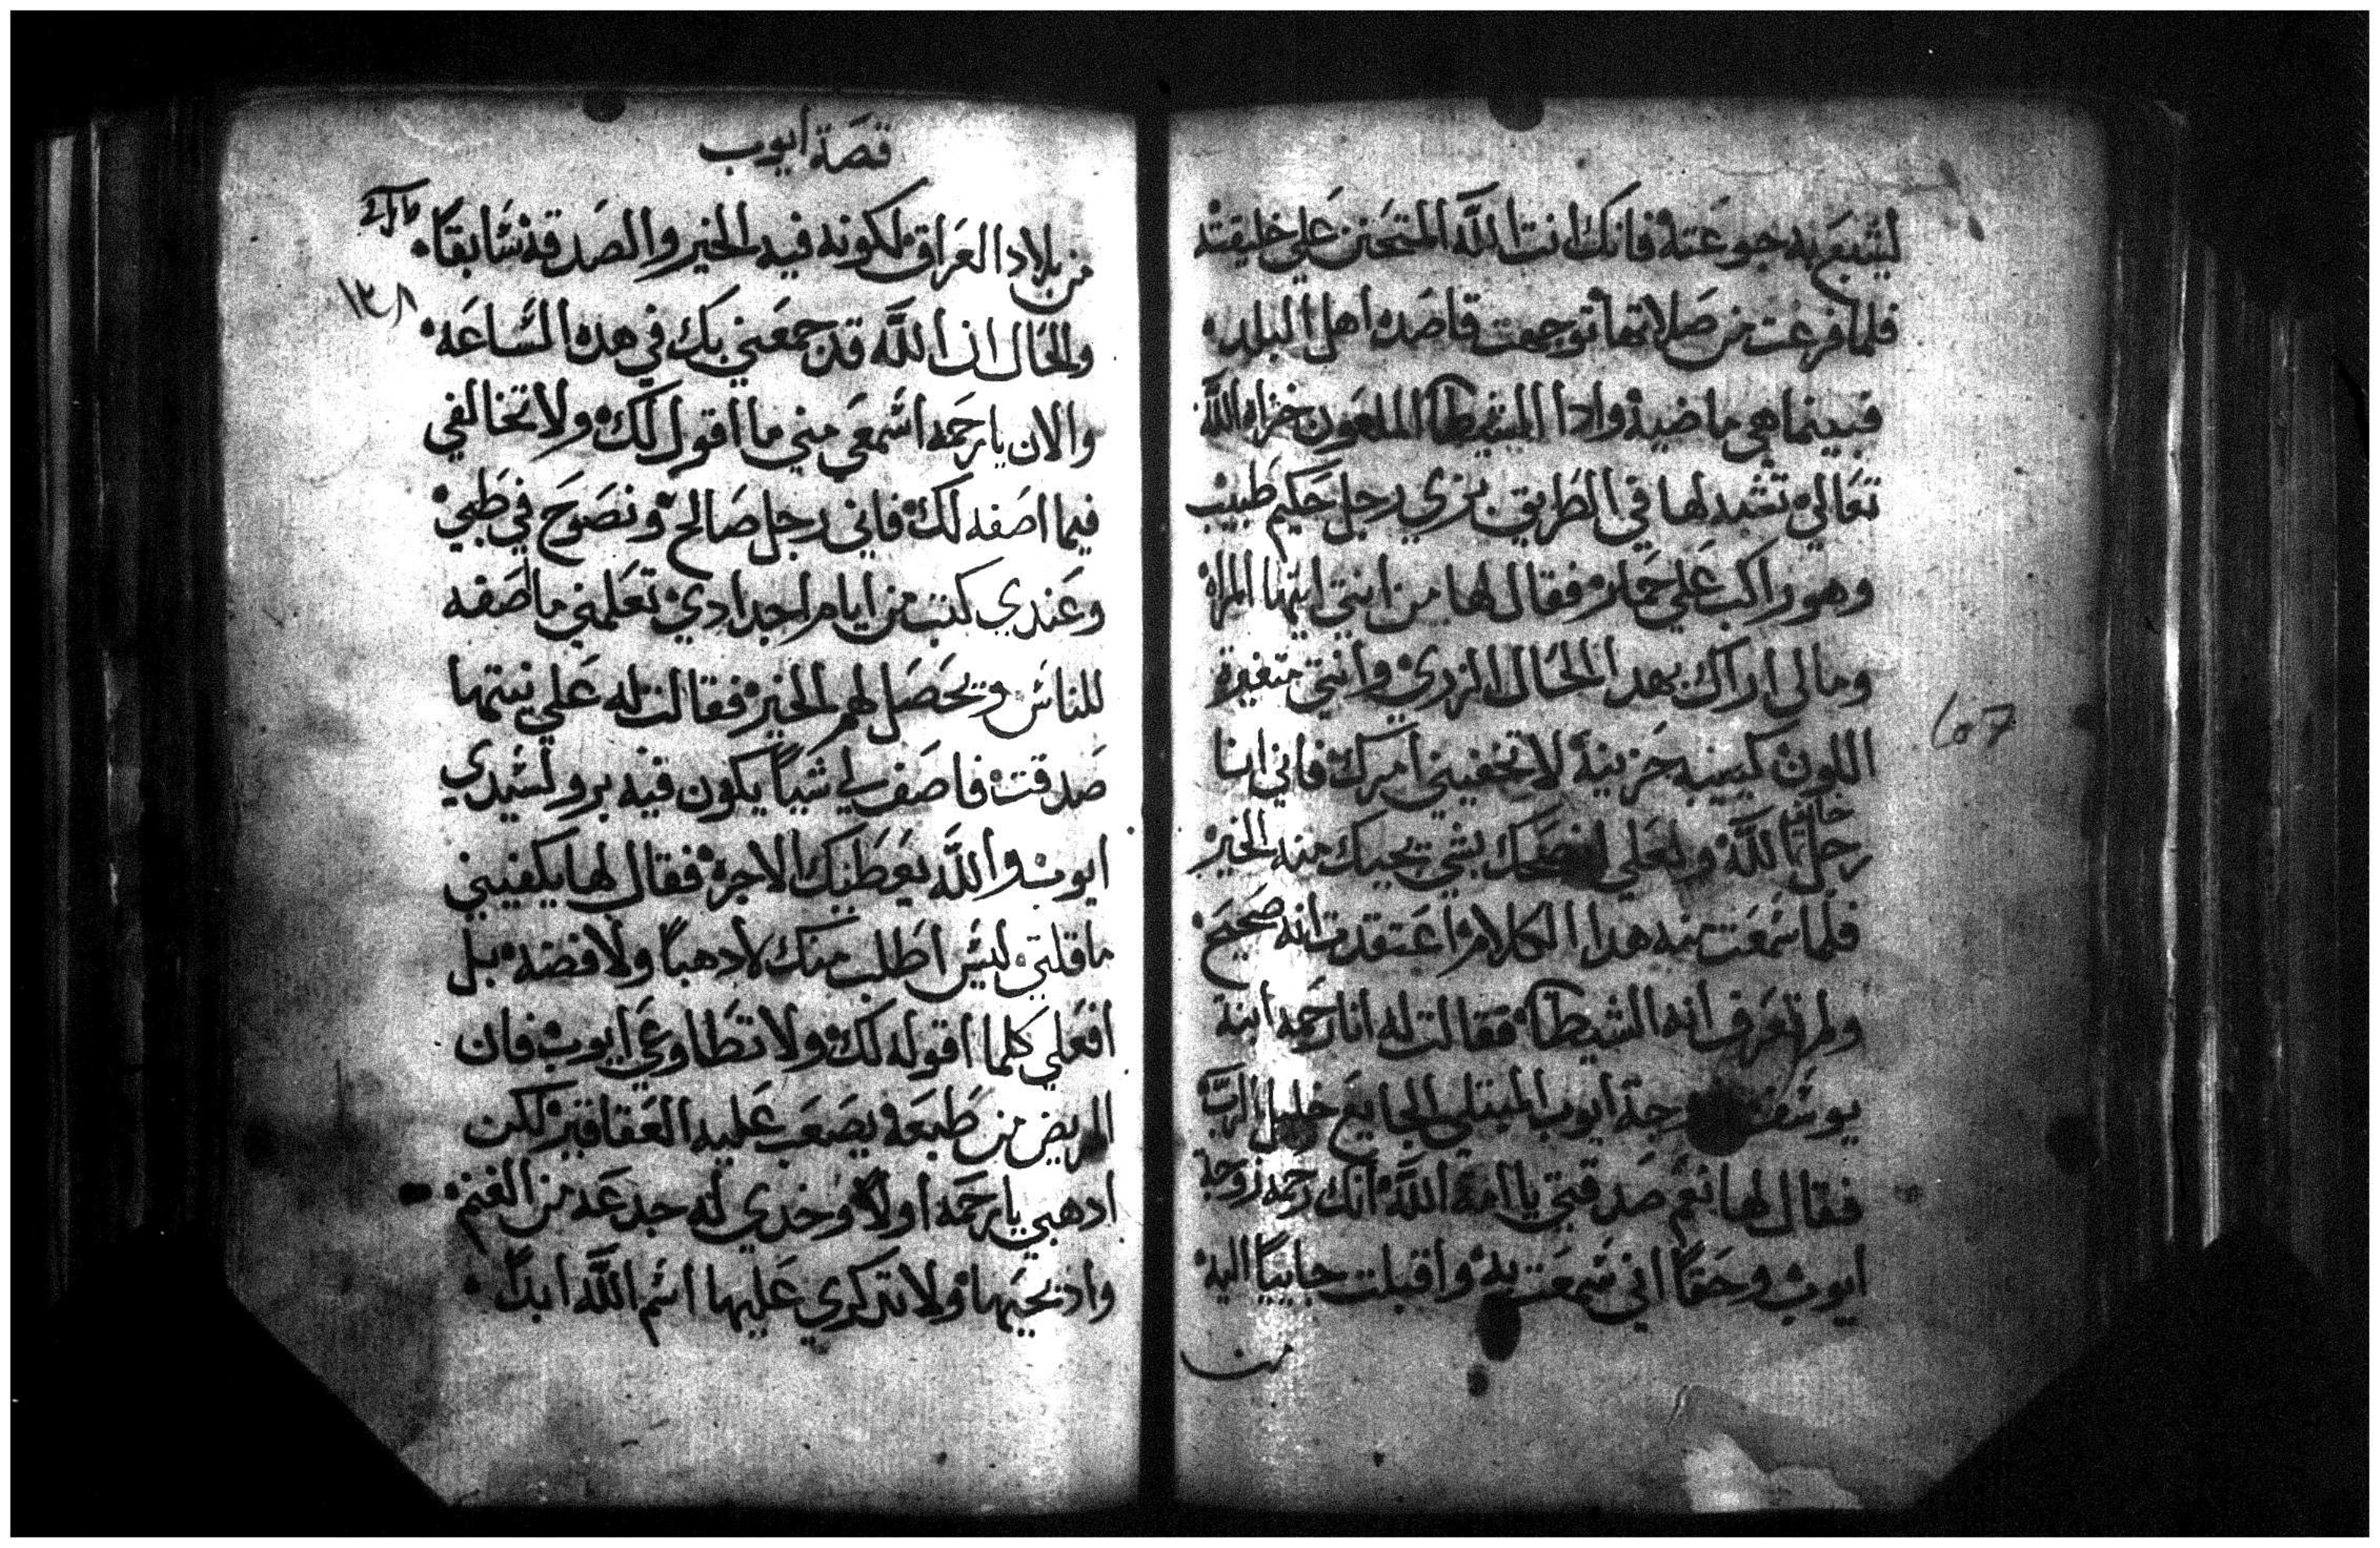 ليشبع به جوعته فانك انت الله المتحنن علي خليقته
فلما فرغت من صلاتها توجهت قاصده اهل البلد
فبينما هي ماضية وادا الشيطان الملعون خزاه الله
تعالي تشبه لها في الطريق بزي رجل حكيم طبيب
وهو راكب علي فقال لها من انتي ايتها المراه
ومالي اراك بهدا الحال الردي وانتي متغيرة
اللون كييبه حزينة لا تخفيني امرك فاني انا
خايف
رجل الله ولعلي بشي يجيك منه الخير
فلما سمعت منه هدا الكلام اعتقدت انه صحيح
ولم تعرف انه الشيطان فقالت له انا رحمه ابنة
يوسف ايوب المبتلي الجايع خليل الرب
فقال لها نعم صدقتي يا امة الله انك رحمه زوجة
ايوب وحقا اني سمعت به واقبلت جاييا اليه
من
107
قصة ايوب
من بلاد العراق لكونه فيه الخير والصدقه سابقا
١٣٨
والحال ان الله قد جمعني بك في هده الساعه
والان يا رحمه اسمعي مني ما اقول لك ولا تخالفي
فيما اصفه لك فاني رجل صالح ونصوح في طبي
وعندي كتب من ايام اجدادي تعلمني ما اصفه
للناس ويحصل لهم الخير فقالت له علي نيتها
صدقت فاصف لي شيا يكون فيه برو لسيدي
ايوب والله يعطيك الاجره فقال لها يكفيني
ما قلتي ليس اطلب منك لا دهبا ولا فضه بل
افعلي كلما اقوله لك ولا تطاوعي ايوب فان
المريض من طبعه يصعب عليه العقاقير لكن
ادهبي يا رحمه اولا وخدي له جدعه من الغنم
وادبحيها ولا تدكري عليها اسم الله ابدا